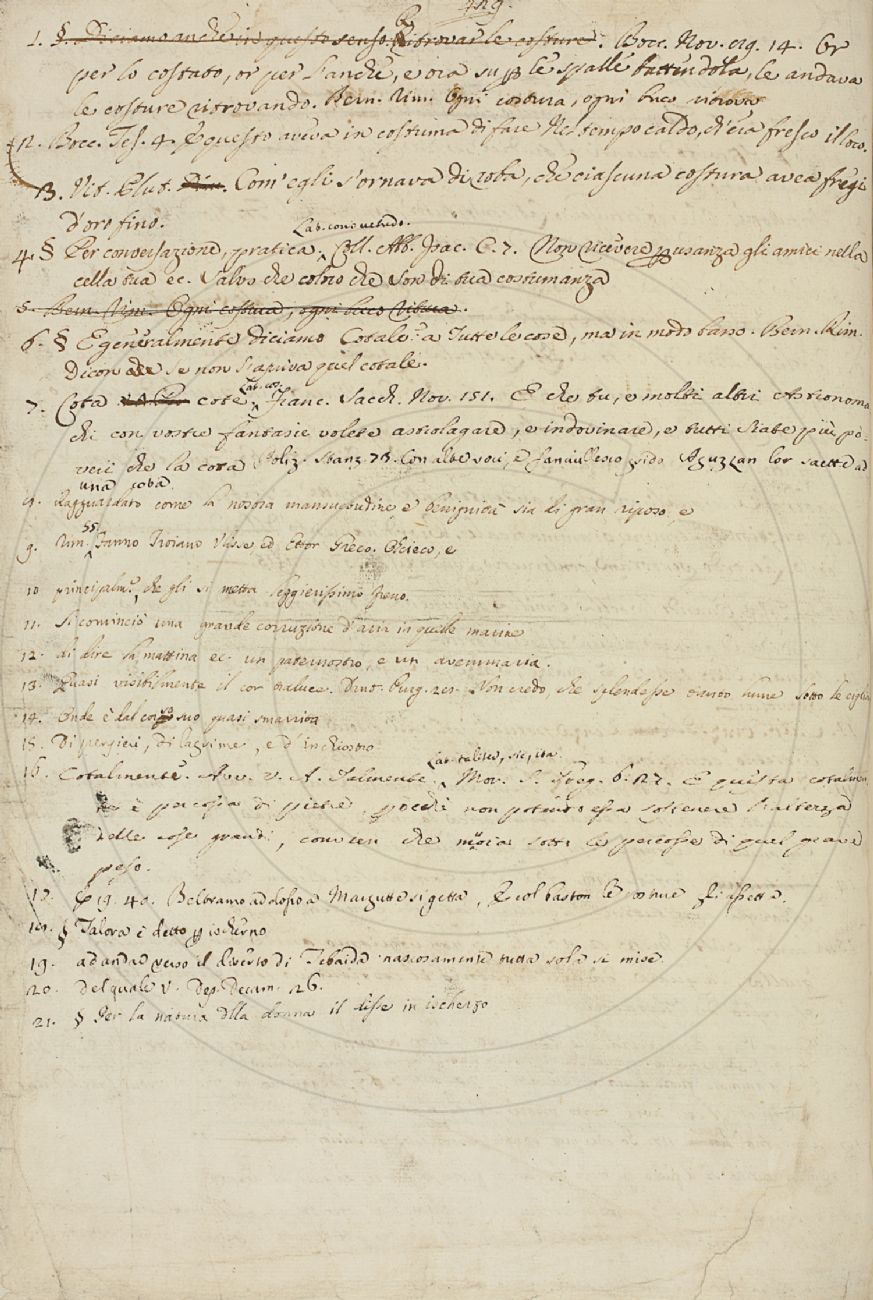 429.
1. §. Diciamo anche in questo senso. Ritrovar le costure. Bocc. Nov. 29. 14. Or
per lo costato, or per l'anche, e ora su ꝑ le spalle battendola, le andava
le costure ritrovando. Bern. Rim. Ogni costura, ogni buco
2. Bocc. Tes. 4. E questo aveva in costuma di fare Nel tempo caldo, ch'era fresco il loco.
3. Vit. Plut. Com' egli s'ornava di roba, che ciascuna costura avea fregi
d'oro fino.
Lat. consuetudo.
4. § Per conversazione, pratica. Coll. Ab. Isac. C. 7. Non ricevere ꝑ usanza gli amici nella
cella tua ec. salvo che coloro che son di tua costumanza
5. Bern. Rim. Ogni costura, ogni buco
6. § E generalmente diciamo Cotale a Tutte le cose, ma in modo basso. Bern. Rim.
Dicon che se non s'apriva quel cotale.
Lat. cos.
7. Cota cote. Franc. Sacch. Nov. 151. E che tu, e molti altri Astronoma
chi con vostre fantasie volete astrologare, e indovinare, e tutti siate più po-
veri che la cota Poliz. Stanz. 73. Con alte voci, e fanciullesco grido Aguzzan lor saette ad
una cota
Ragguardato come la nostra mansuetudine, e benignità sia di gran riposo, e
9. Rim. 55. Fanno Troiano Ulisse, ed Ettor Greco. Chieco, e
10 principalm.e, che gli si metta leggierissimo freno.
11. Si cominciò una grande corruzione d'aria in quelle marine
12. di dire la mattina ec. un paternostro, e un avemmaria.
13. Quasi visibilmente il cor traluce. Dant. Purg. 28. Non credo, che splendesse tanto lume Sotto le ciglia
14. Onde è dal corso suo quasi smarrita
15. Di pensieri, di lagrime, e d'inchiostro
Lat. taliter, sic, ita.
16. Cotalmente. Avv. v. A. Talmente. Mor. S. Greg. 6. 27. E questa cotalmen
te è percossa di pietre, ꝑocchè non potendo essa sostenere l'altezza
delle cose grandi, convien che muoia sotto le percosse di quel grave
peso.
E 19. 40. Beltramo addosso a Margutte si getta, E col baston le costure gli assetta.
18. § Talora è detto ꝑ ischerno
19. ad andar verso il diserto di Tebaida nascosamente tutta sola si mise
20. del quale v. Dep. Decam. 26.
21. § Per la natura della donna il disse in ischerzo